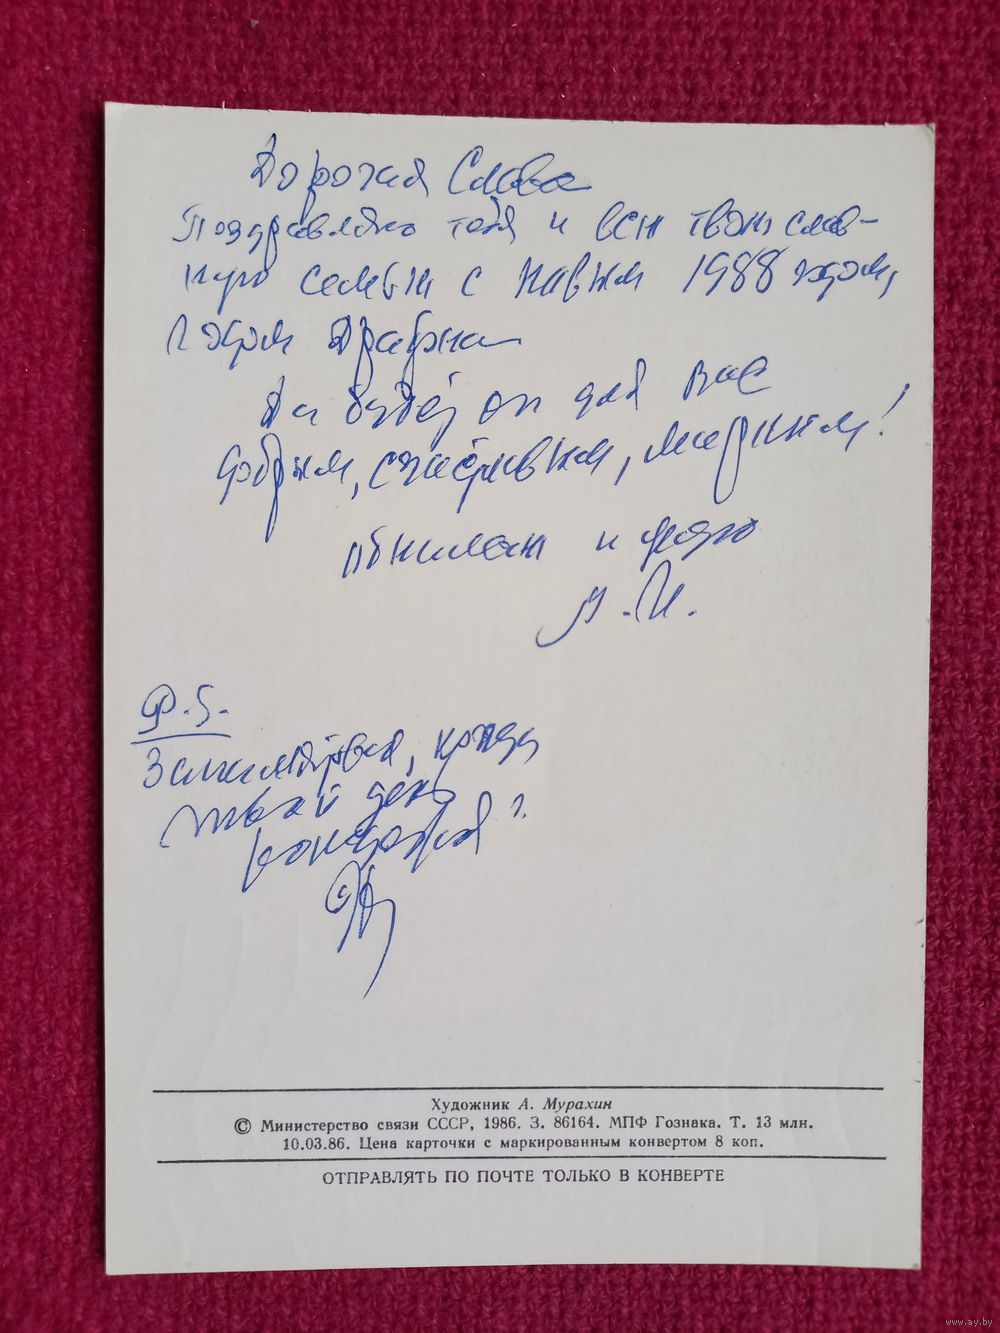 Дорогая Слава
Поздравляю тебя и всю твою слав-
ную семью с Новым 1988 годом,
годом Дракона
Да будет он для вас
добрым, счастливым, мирным!
Обнимаю и целую
А.И.
P.S.
Запамятовал, когда
твой день
рождения?
Художник А. Мурахин
© Министерство связи СССР, 1986. З. 86164. МПФ Гознака. Т. 13 млн.
10.03.86. Цена карточки с маркированным конвертом 8 коп.
ОТПРАВЛЯТЬ ПО ПОЧТЕ ТОЛЬКО В КОНВЕРТЕ
www.ay.by